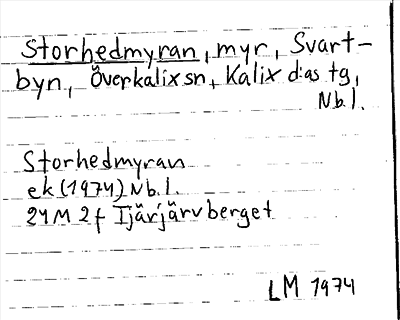 Storhedmyran, myr, Svart-
byn, Överkalix sn, Kalix d:as tg,
Nb.l.
Storhedmyran
ek (1974) Nb.l.
24M 2f Tjärjärvberget
LM 1974